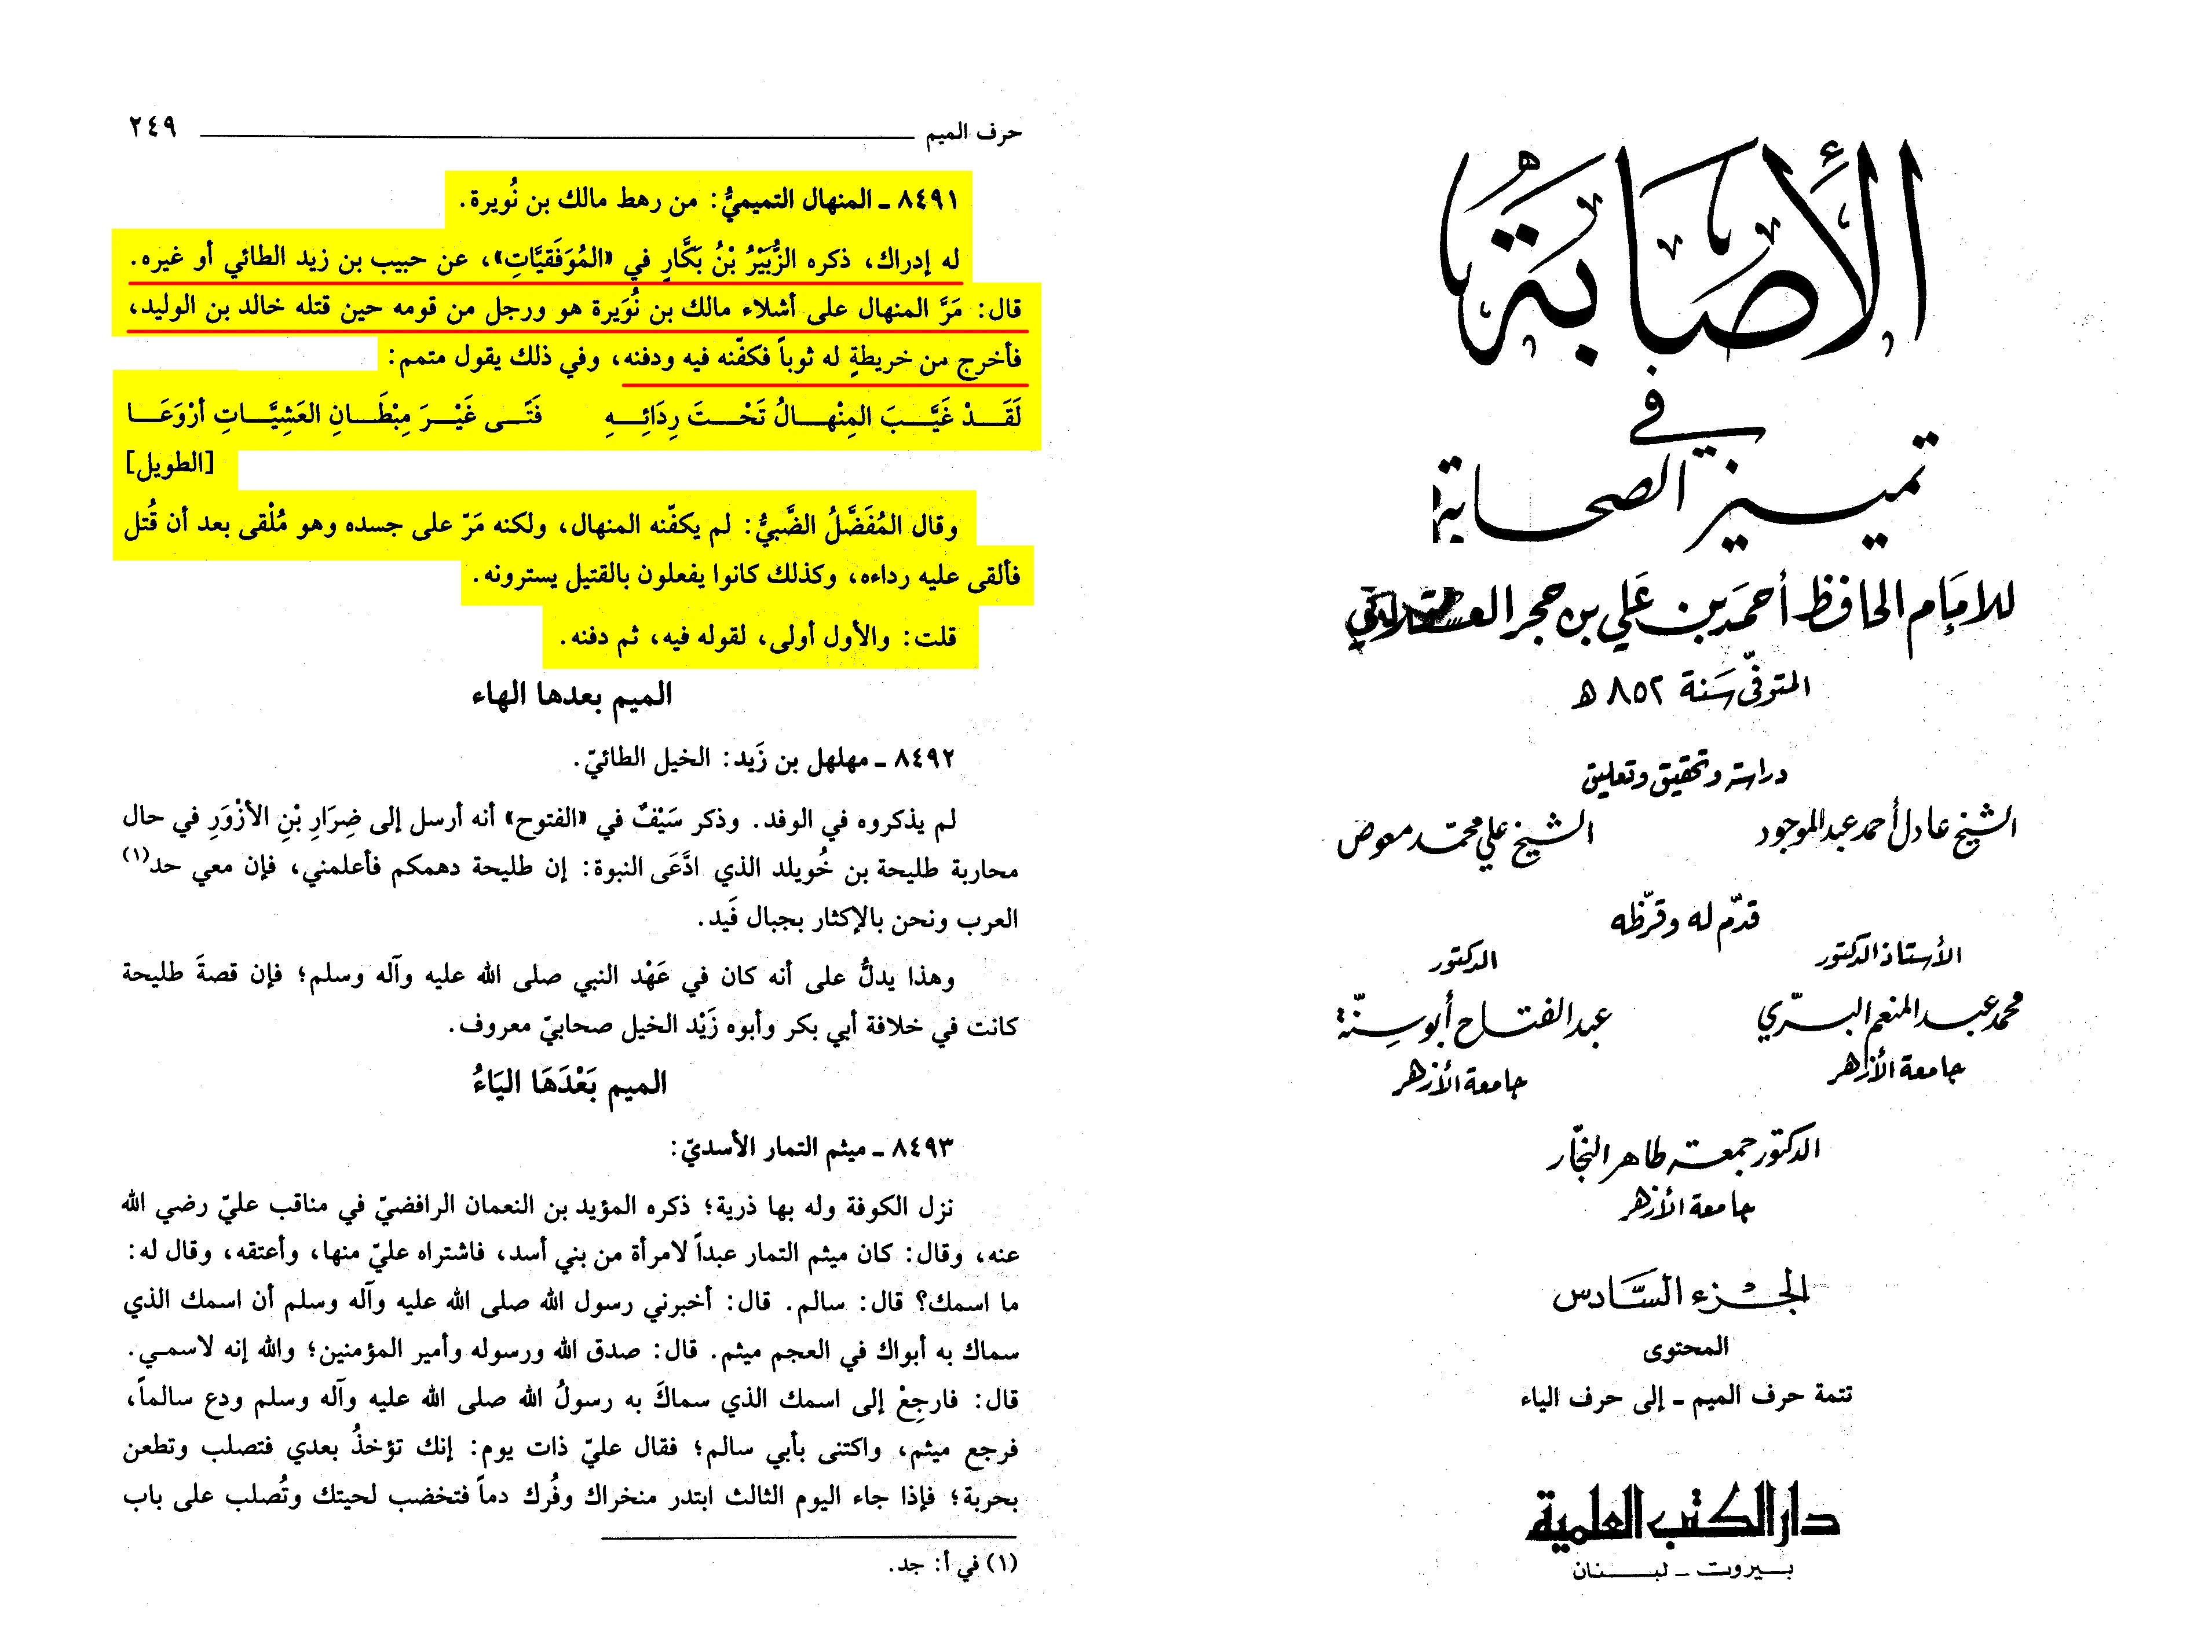 الأصابة
في
تمييز الصحابة
للإمام الحافظ أحمد بن علي بن حجر العسقلاني
المتوفى سنة ٨٥٢ ه
دراسة وتحقيق وتعليق
الشيخ عادل أحمد عبد الموجود الشيخ علي محمّد معوض
قدّم له وقرّظه
الأستاذ الدكتور الدكتور
محمد عبد المنعم البرّي عبد الفتاح أبو سنّة
جامعة الأزهر جامعة الأزهر
الدكتور جمعة طاهر النجّار
جامعة الأزهر
الجزء السَّادس
المحتوى
تتمة حرف الميم ـ إلى حرف الياء
دار الكتب العلمية
بيروت ـ لبنان
حرف الميم ٢٤٩
٨٤٩١ ـ المنهال التميميُّ: من رهط مالك بن نُويرة.
له إدراك، ذكره الزُّبَيْرُ بْنُ بَكَّارٍ في «المُوَفَقيَّاتِ»، عن حبيب بن زيد الطائي أو غيره.
قال: مَرَّ المنهال على أشلاء مالك بن نُوَيرة هو ورجل من قومه حين قتله خالد بن الوليد،
فأخرج من خريطةٍ له ثوباً فكفّنه فيه ودفنه، وفي ذلك يقول متمم:
لَقَدْ غَيَّبَ المِنْهالُ تَحْتَ رِدَائِهِ فَتًى غَيْرَ مِبْطَانِ العَشِيَّاتِ أرْوَعَا
[الطويل]
وقال المُفَضَّلُ الضَّبيُّ: لم يكفّنه المنهال، ولكنه مَرّ على جسده وهو مُلْقى بعد أن قُتل
فألقى عليه رداءه، وكذلك كانوا يفعلون بالقتيل يسترونه.
قلت: والأول أولى، لقوله فيه، ثم دفنه.
الميم بعدها الهاء
٨٤٩٢ ـ مهلهل بن زَيد: الخيل الطائيّ.
لم يذكروه في الوفد. وذكر سَيْفٌ في «الفتوح» أنه أرسل إلى ضِرَارِ بْنِ الأزْوَرِ في حال
محاربة طليحة بن خُويلد الذي ادَّعَى النبوة: إن طليحة دهمكم فأعلمني، فإن معي حد(١)
العرب ونحن بالإكثار بجبال فَيد.
وهذا يدلُّ على أنه كان في عَهْد النبي صلى الله عليه وآله وسلم؛ فإن قصةَ طليحة
كانت في خلافة أبي بكر وأبوه زَيْد الخيل صحابيّ معروف.
الميم بَعْدَهَا اليَاءُ
٨٤٩٣ ـ ميثم التمار الأسديّ:
نزل الكوفة وله بها ذرية؛ ذكره المؤيد بن النعمان الرافضيّ في مناقب عليّ رضي الله
عنه، وقال: كان ميثم التمار عبداً لامرأة من بني أسد، فاشتراه عليّ منها، وأعتقه، وقال له:
ما اسمك؟ قال: سالم. قال: أخبرني رسول الله صلى الله عليه وآله وسلم أن اسمك الذي
سماك به أبواك في العجم ميثم. قال: صدق الله ورسوله وأمير المؤمنين؛ والله إنه لاسمي.
قال: فارجِعْ إلى اسمك الذي سماكَ به رسولُ الله صلى الله عليه وآله وسلم ودع سالماً،
فرجع ميثم، واكتنى بأبي سالم؛ فقال عليّ ذات يوم: إنك تؤخذُ بعدي فتصلب وتطعن
بحربة؛ فإذا جاء اليوم الثالث ابتدر منخراك وفُرك دماً فتخضب لحيتك وتُصلب على باب
(١) في أ: جد.